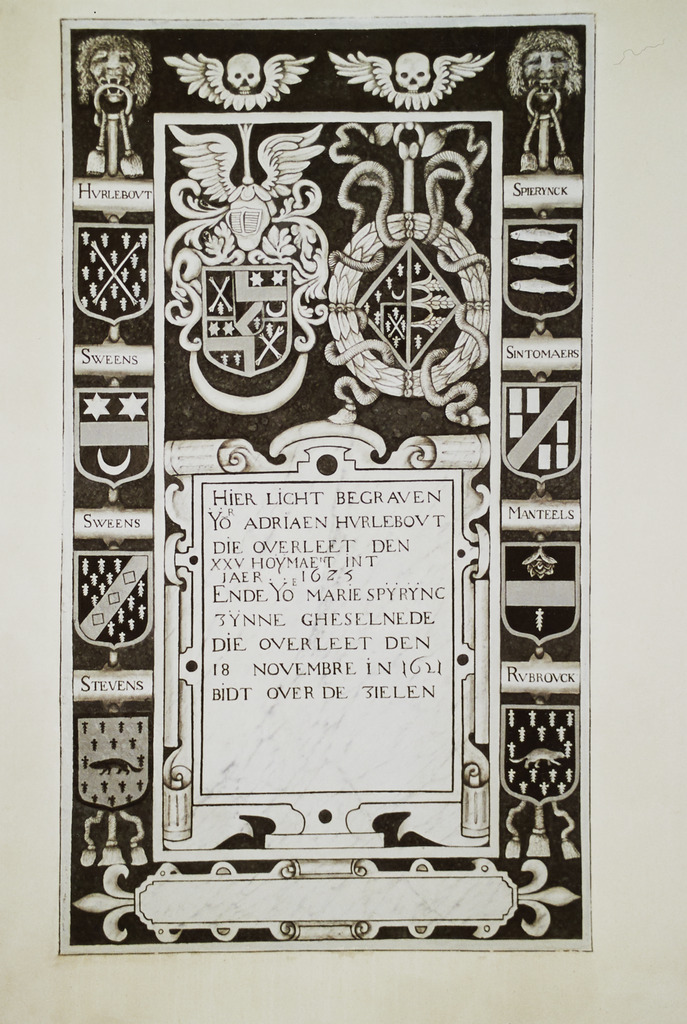 HVRLEBOVT
SWEENS
SWEENS
STEVENS
SPIERYNCK
SINTOMAERS
MANTEELS
RVBROVCK
HIER LICHT BEGRAVEN
ŸOR ADRIAEN HVRLEBOVT
DIE OVERLEET DEN
XXV HOYMAET INT
JAER . . 1625
ENDE YOE MARIE SPYRYNC
ZŸNNE GHESELNEDE
DIE OVERLEET DEN
18 NOVEMBRE IN 1621
BIDT OVER DE ZIELEN